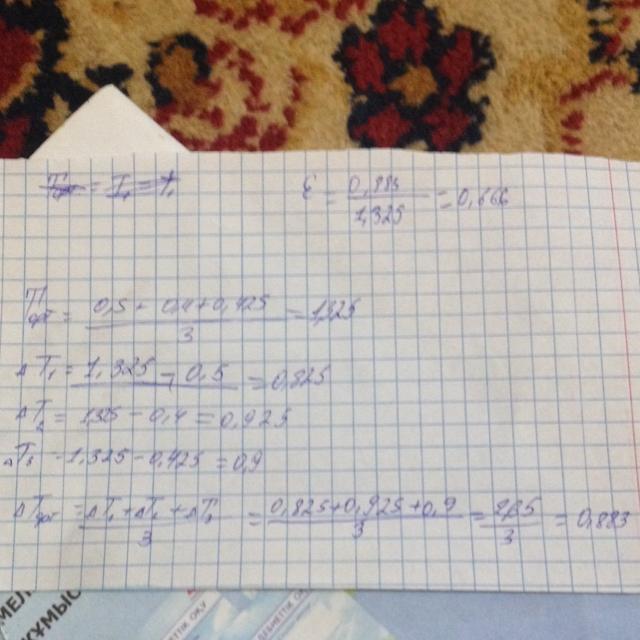 ε = 0,883 / 1,325 = 0,666
Tср = 0,5 + 0,4 + 0,425 / 3 = 1,325
ΔT₁ = 1,325 - 0,5 = 0,825
ΔT₂ = 1,325 - 0,4 = 0,925
ΔT₃ = 1,325 - 0,425 = 0,9
ΔTср = ΔT₁ + ΔT₂ + ΔT₃ / 3 = 0,825 + 0,925 + 0,9 / 3 = 2,65 / 3 = 0,883